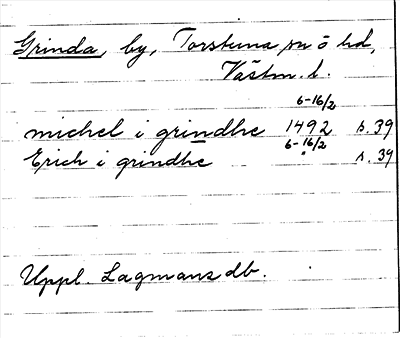 Grinda, by, Torstuna sn o hd,
Västm. l.
6-16/2
michel i grindhe 1492 s. 39
6-16/2
Erich i grindhe s. 39
Uppl. Lagmans db.